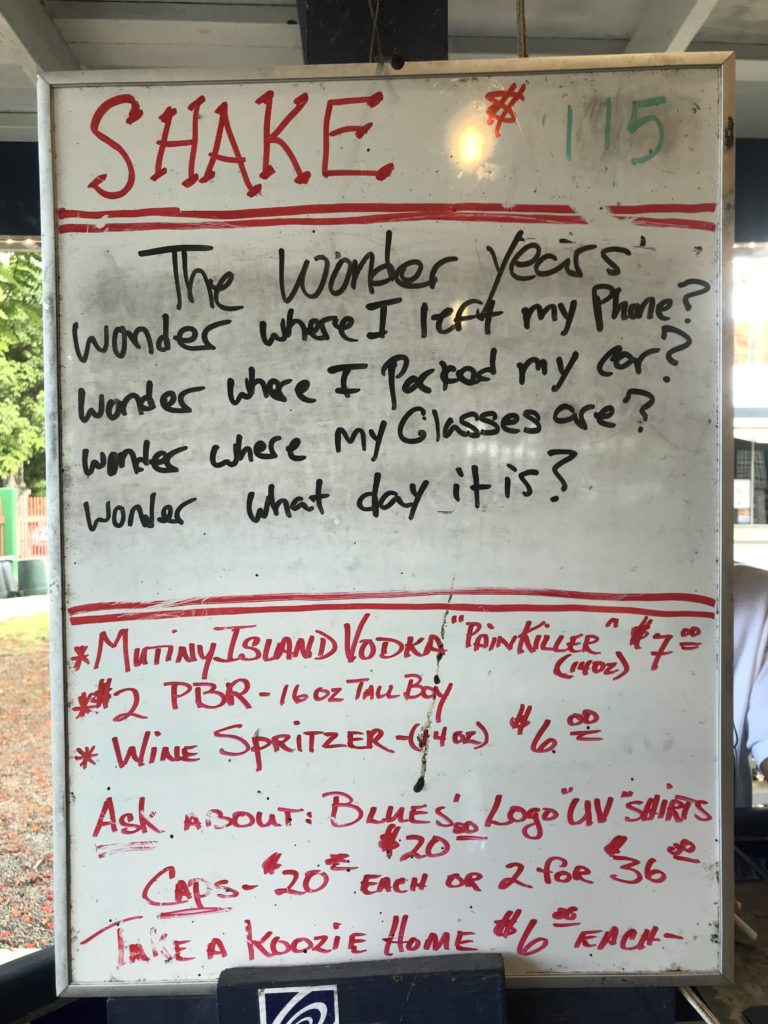 SHAKE $ 115
The Wonder Years
Wonder where I left my Phone?
Wonder where I Parked my car?
Wonder where my Glasses are?
Wonder what day it is?
* MUTINY ISLAND VODKA "PAINKILLER" $7.00
(14oz)
* $2 PBR - 16 oz TALL BOY
* WINE SPRITZER - (14oz) $6.00
ASK ABOUT: BLUES' LOGO "UV" SHIRTS
$20.00
CAPS - $20.00 EACH OR 2 FOR $36.00
TAKE A KOOZIE HOME $6.00 EACH -